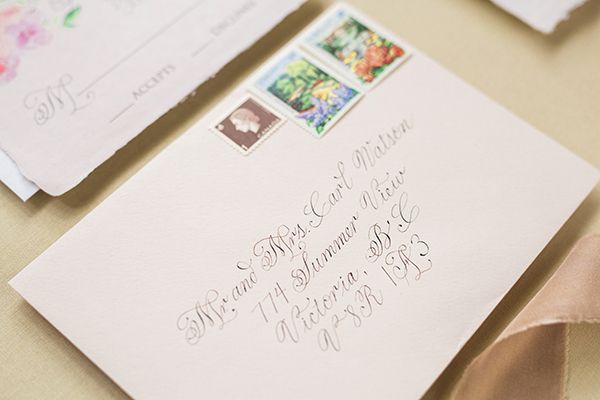 M
ACCEPTS
CANADA
Mr and Mrs. Carl Watson
774 Summer View
Victoria, B'C
V8R 1N3